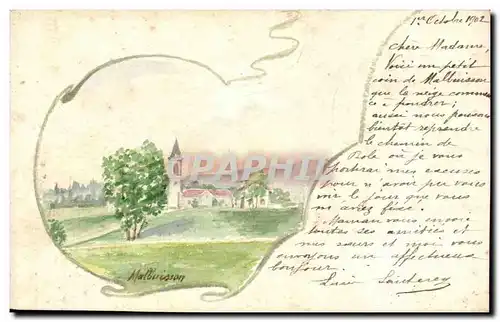 1er Octobre 1902
chère Madame,
Voici un petit
coin de Malbuisson
que la neige commence
à poudrer;
aussi nous pouvons
bientôt reprendre
le chemin de
Dole où je vous
porterai mes excuses
pour n'avoir pu vous
voir le jour que vous
nous avez fixé.
Maman vous envoie
toutes ses amitiés et
mes sœurs et moi vous
envoyons un affectueux
bonjour.
CPAPHIL
Malbuisson